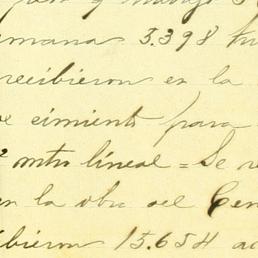 emana 3.398 
recibieron en la
cimiento para
mtro lineal = Se re
en la obra del Cem
ibieron 15.654 ad